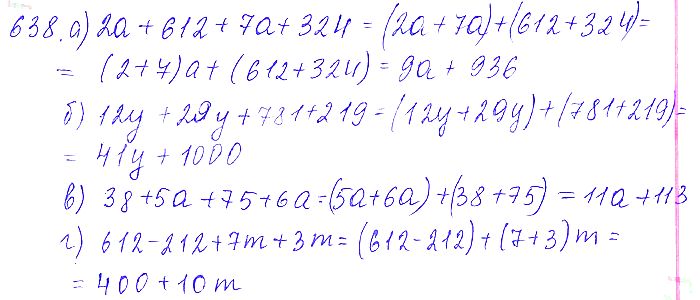 638. а) 2a + 612 + 7a + 324 = (2a + 7a) + (612 + 324) =
= (2 + 7)a + (612 + 324) = 9a + 936
б) 12y + 29y + 781 + 219 = (12y + 29y) + (781 + 219) =
= 41y + 1000
в) 38 + 5a + 75 + 6a = (5a + 6a) + (38 + 75) = 11a + 113
г) 612 - 212 + 7m + 3m = (612 - 212) + (7 + 3)m =
= 400 + 10m